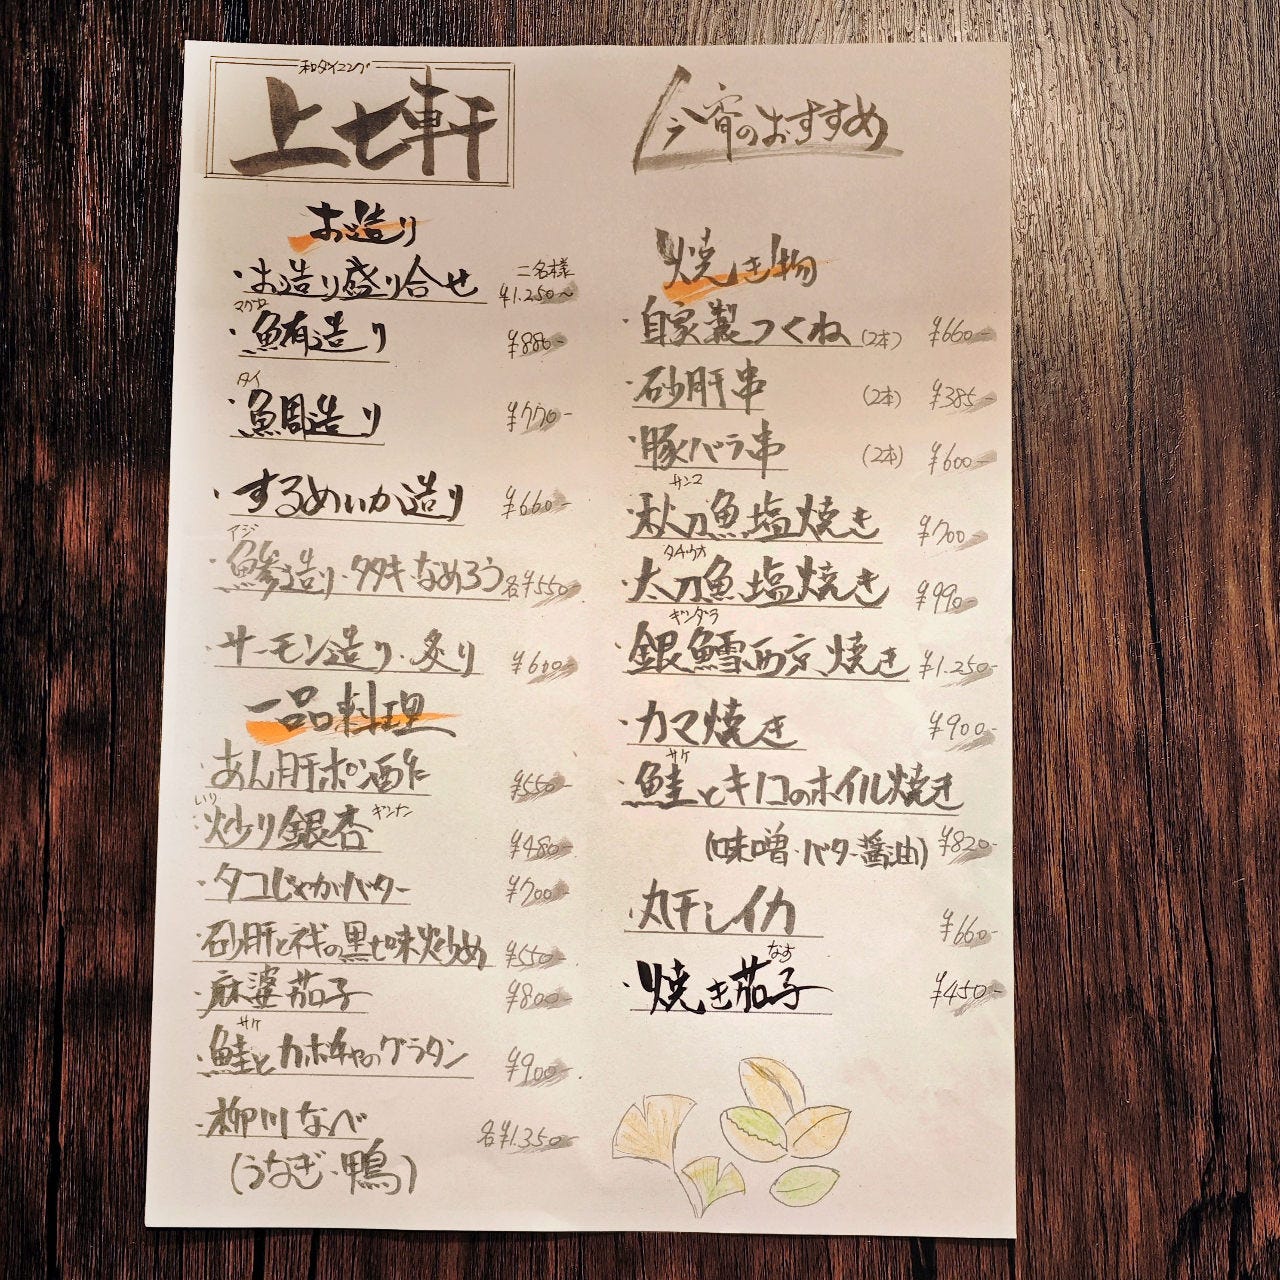 和ダイニング
上七軒
今宵のおすすめ
お造り
・お造り盛り合せ 二名様 ¥1.250~
マグロ
・鮪造り ¥880-
タイ
・鯛造り ¥770-
・するめいか造り ¥660-
アジ
・鯵造り・タタキ・なめろう 各¥550-
・サーモン造り・炙り ¥600-
一品料理
・あん肝ポン酢 ¥550-
いり ギンナン
・炒り銀杏 ¥480-
・タコじゃがバター ¥700-
・砂肝と の黒七味炒め ¥550-
・麻婆茄子 ¥800-
サケ
・鮭とカボチャのグラタン ¥900-
・柳川なべ 各¥1.350-
(うなぎ・鴨)
焼き物
・自家製つくね (2本) ¥660-
・砂肝串 (2本) ¥385-
・豚バラ串 (2本) ¥600-
サンマ
・秋刀魚塩焼き ¥700-
タチウオ
・太刀魚塩焼き ¥990-
ギンダラ
・銀鱈西京焼き ¥1.250-
・カマ焼き ¥900-
サケ
・鮭とキノコのホイル焼き
(味噌・バター醤油) ¥820-
・丸干しイカ ¥660-
なす
・焼き茄子 ¥450-